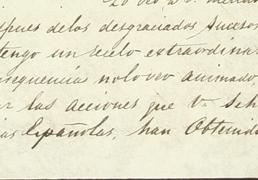 spues delos desgraciados sucesos
tengo un recelo extraordina
nsequencia nolo veo animado
ar las acciones que V. Sch
ias Españolas, han Obtenido